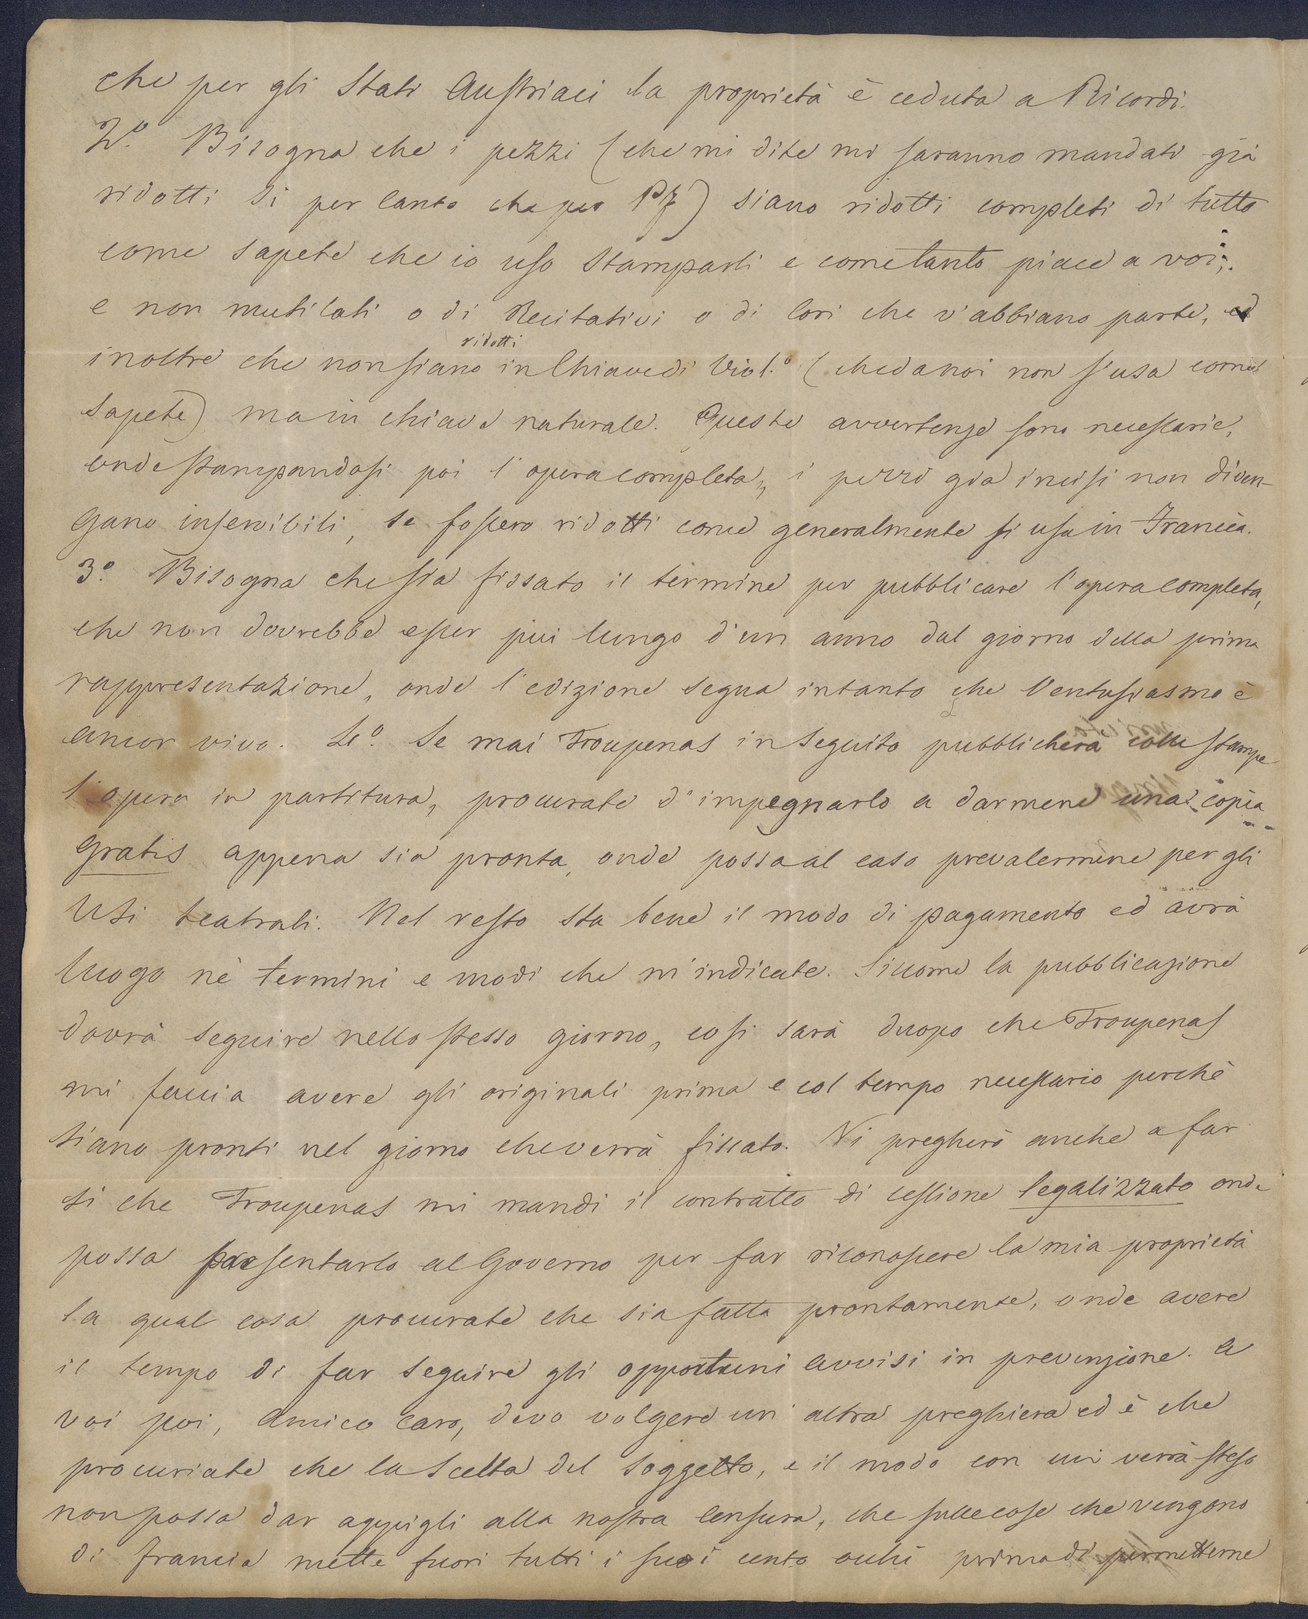 che per gli Stati Austriaci la proprietà è ceduta a Ricordi.
2.º Bisogna che i pezzi (che mi dite mi saranno mandati già
ridotti sì per Canto che per Pf) siano ridotti completi di tutto
come sapete che io uso stamparli e come tanto piace a voi;
e non mutilati o di Recitativi o di Cori che v'abbiano parte, ed
inoltre che non siano ridotti in Chiave di Viol.º (che da noi non s'usa come
sapete) ma in chiave naturale. Queste avvertenze sono necessarie,
onde stampandosi poi l'opera completa, i pezzi già incisi non diven-
gano inservibili, se fossero ridotti come generalmente si usa in Francia.
3.º Bisogna che sia fissato il termine per pubblicare l'opera completa,
che non dovrebbe esser più lungo d'un anno dal giorno della prima
rappresentazione, onde l'edizione segua intanto che l'entusiasmo è
ancor vivo. 4.º Se mai Troupenas in seguito pubblicherà colle stampe
l'opera in partitura, procurate d'impegnarlo a darmene una copia
gratis appena sia pronta, onde possa al caso prevalermene per gli
usi teatrali. Nel resto sta bene il modo di pagamento ed avrà
luogo nè termini e modi che m'indicate. Siccome la pubblicazione
dovrà seguire nello stesso giorno, così sarà duopo che Troupenas
mi faccia avere gli originali prima e col tempo necessario perchè
siano pronti nel giorno che verrà fissato. Vi pregherò anche a far
sì che Troupenas mi mandi il contratto di cessione legalizzato onde
possa presentarlo al Governo per far riconoscere la mia proprietà
la qual cosa procurate che sia fatta prontamente, onde avere
il tempo di far seguire gli opportuni avvisi in prevenzione. A
voi poi, Amico caro, devo volgere un'altra preghiera ed è che
procuriate che la scelta del soggetto, e il modo con cui verrà steso
non possa dar appigli alla nostra Censura, che sulle cose che vengono
di Francia mette fuori tutti i suoi cento occhi prima di permetterne